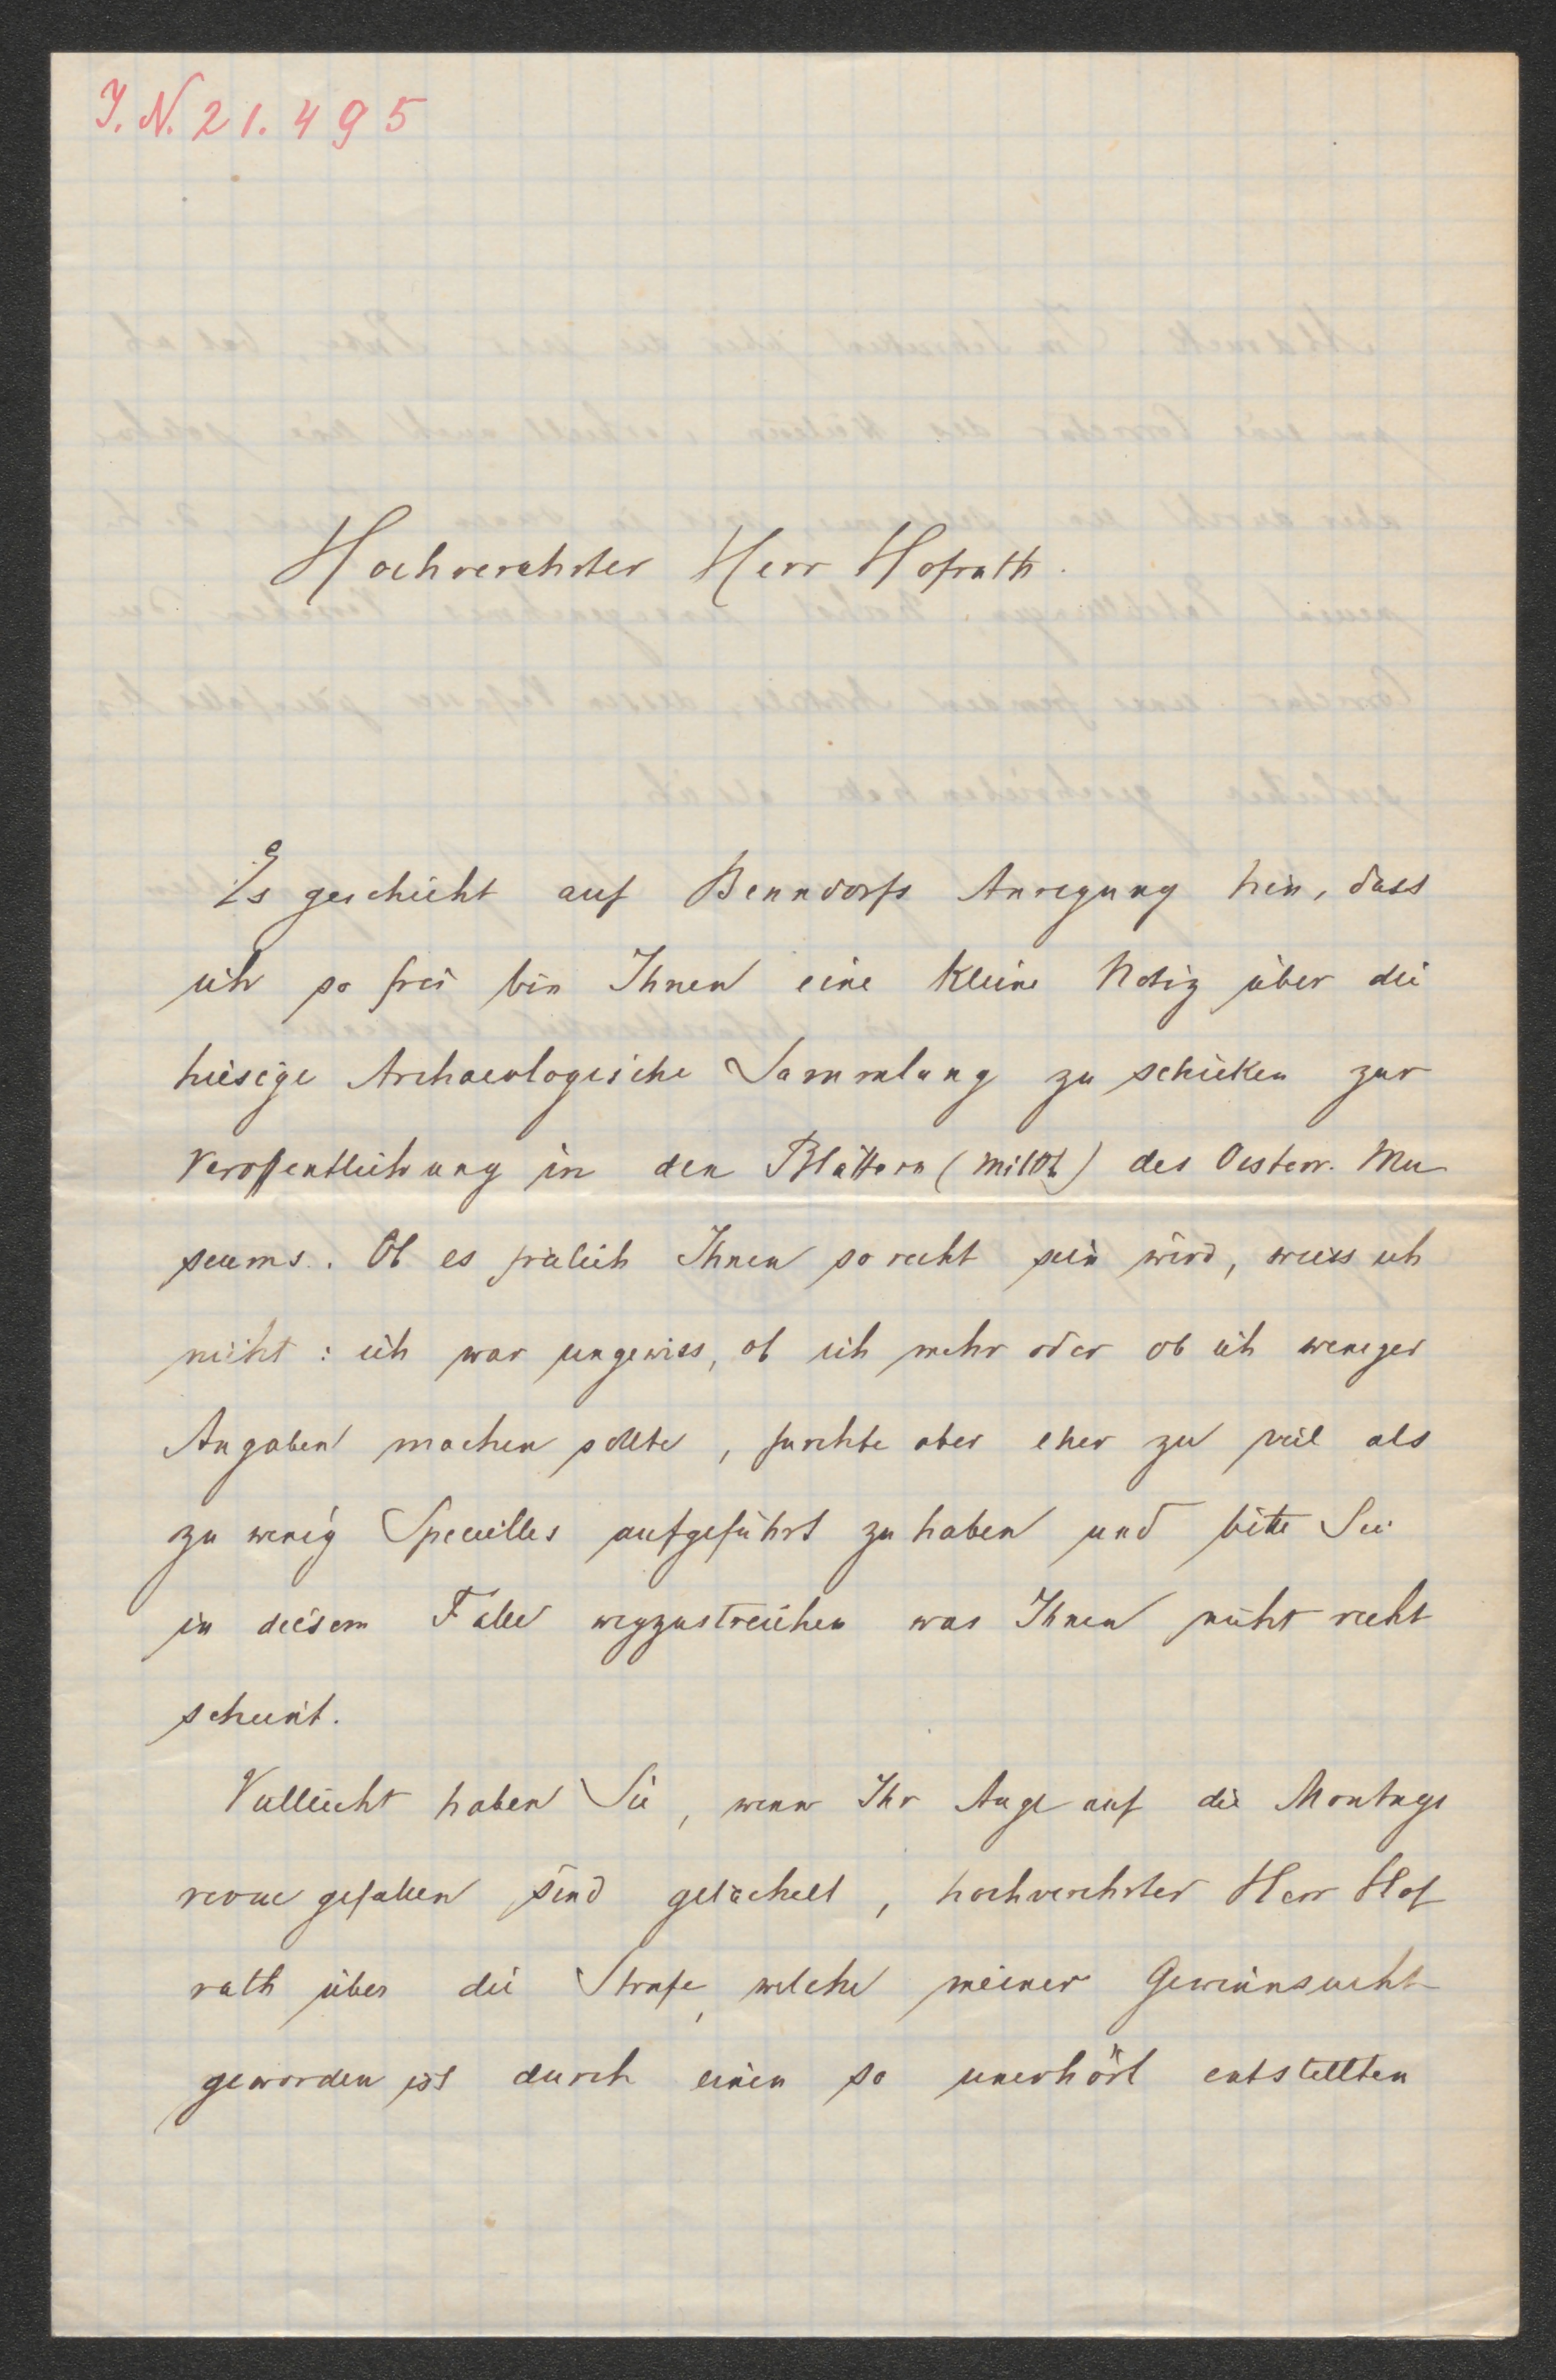 J. N. 21.495
Hochverehrter Herr Hofrath.
Es geschieht auf Benndorfs Anregung hin, dass
ich so frei bin Ihnen eine kleine Notiz über die
hiesige Archaeologische Sammlung zu schicken zur
Veroffentlichung in den Blättern (Mitth) des Oesterr. Mu
seums. Ob es freilich Ihnen so recht sein wird, weiss ich
nicht: ich war ungewiss, ob ich mehr oder ob ich weniger
Angaben machen sollte, furchte aber eher zu viel als
zu wenig Specielles aufgeführt zu haben und bitte Sie
in diesem Falle wegzustreichen was Ihnen nicht recht
scheint.
Vielleicht haben Sie, wenn Ihr Auge auf die Montags
revue gefallen sind gelächelt, hochverehrter Herr Hof
rath über die Strafe, welche meiner Gewinnsucht
geworden ist durch einen so unerhört entstellten